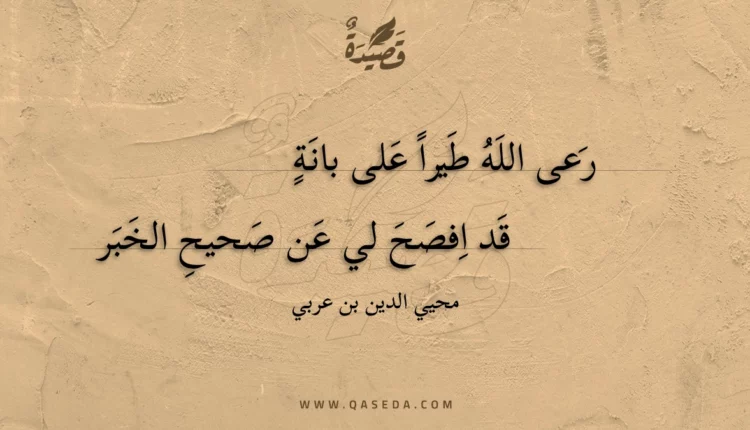 قَصِيدَةٌ
رَعى اللَهُ طَيراً عَلى بانَةٍ
قَد اِفصَحَ لي عَن صَحيحِ الخَبَر
محيي الدين بن عربي
WWW.QASEDA.COM